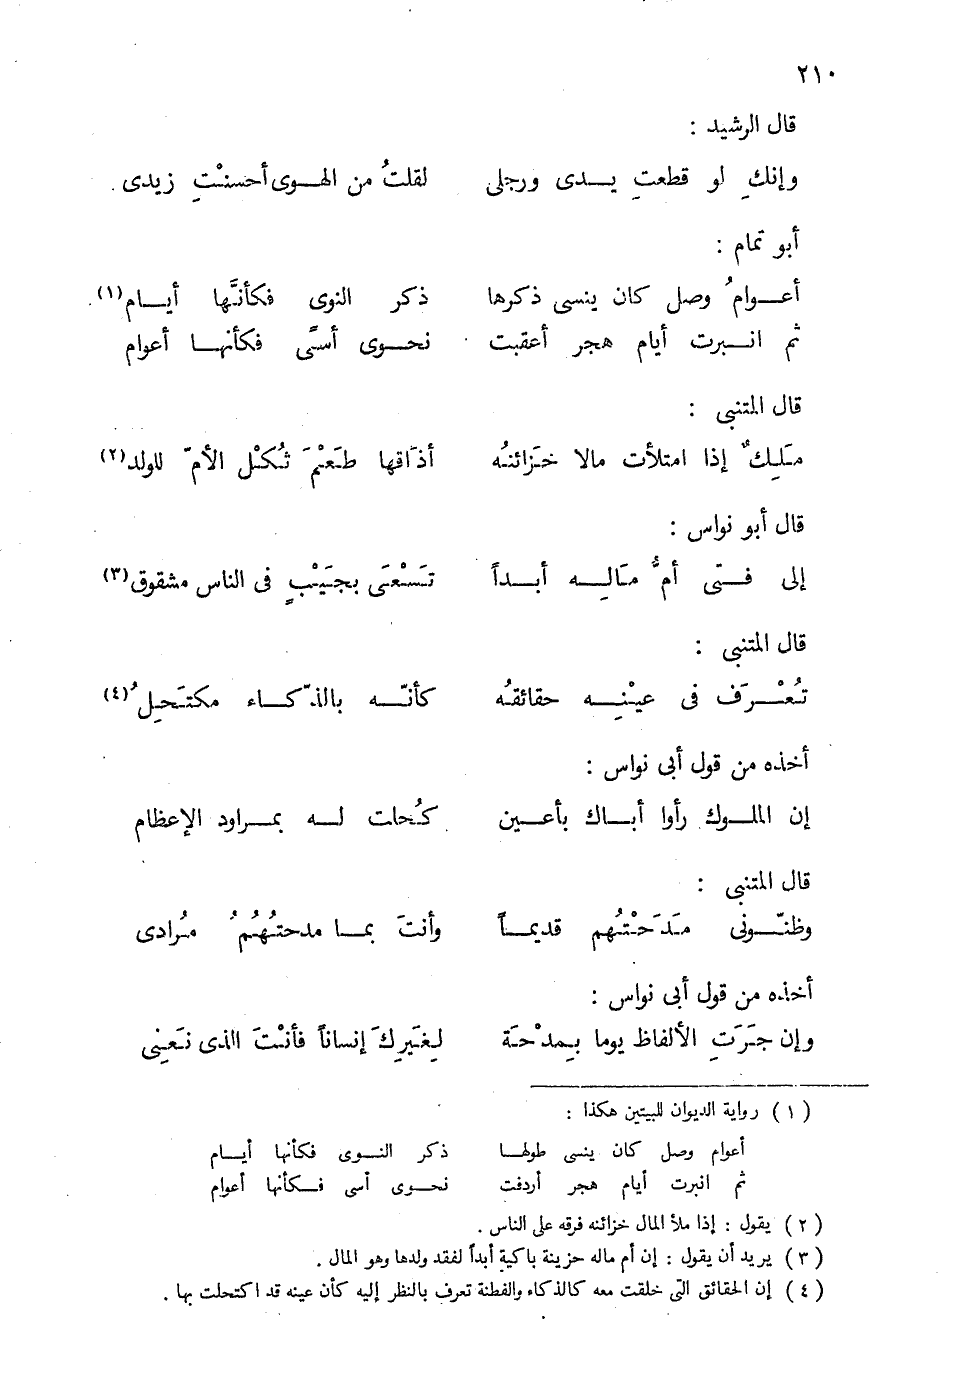 ٢١٠
قال الرشيد :
وإنكِ لو قطعتِ يدى ورجلى لقلتُ من الهوى أحسنْتِ زيدى .
أبو تمام :
أعوامُ وصل كان ينسى ذكرها ذكر النوى فكأنَّها أيام(١) .
ثم انبرت أيام هجر أعقبت نحوى أسًى فكأنها أعوام
قال المتنبى :
مَلِكٌ إذا امتلأت مالا خَزائنُه أذَاقها طَعْمَ ثُكْل الأمّ للولد(٢)
قال أبو نواس :
إلى فتى أمُّ مَالِه أبداً تَسْعَى بجَيْبٍ فى الناس مشقوق(٣)
قال المتنبى :
تُعْرَف فى عيْنِه حقائقُه كأنّه بالذّكاء مكتَحِلُ(٤)
أخذه من قول أبى نواس :
إن الملوك رأوا أباك بأعين كُحلت له بمراود الإعظام
قال المتنبى :
وظنّونى مَدَحْتُهم قديماً وأنتَ بما مدحتُهُمُ مُرادى
أخذه من قول أبى نواس :
وإن جَرَتِ الألفاظ يوما بِمدْحَة لِغَيرِكَ إنساناً فأنْتَ الذى نَعْنِى
(١) رواية الديوان للبيتين هكذا :
أعوام وصل كان ينسى طولها ذكر النوى فكأنها أيام
ثم انبرت أيام هجر أردفت نحوى أسى فكأنها أعوام
(٢) يقول : إذا ملأ المال خزائنه فرقه على الناس .
(٣) يريد أن يقول : إن أم ماله حزينة باكية أبداً لفقد ولدها وهو المال .
(٤) إن الحقائق التى خلقت معه كالذكاء والفطنة تعرف بالنظر إليه كأن عينه قد اكتحلت بها .